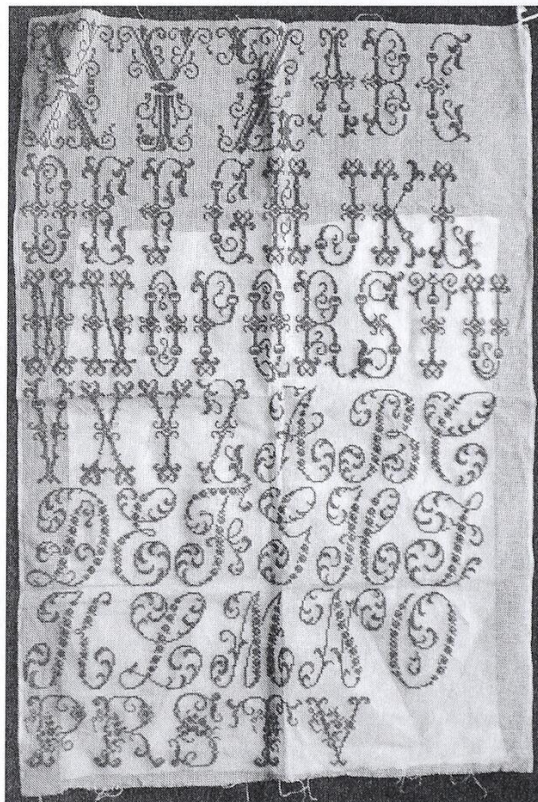 X Y X A B C
D E F G H J K L
M N O P Q R S T U
V X Y Z A B C
D E F G H J
K L M N O
P R S T V